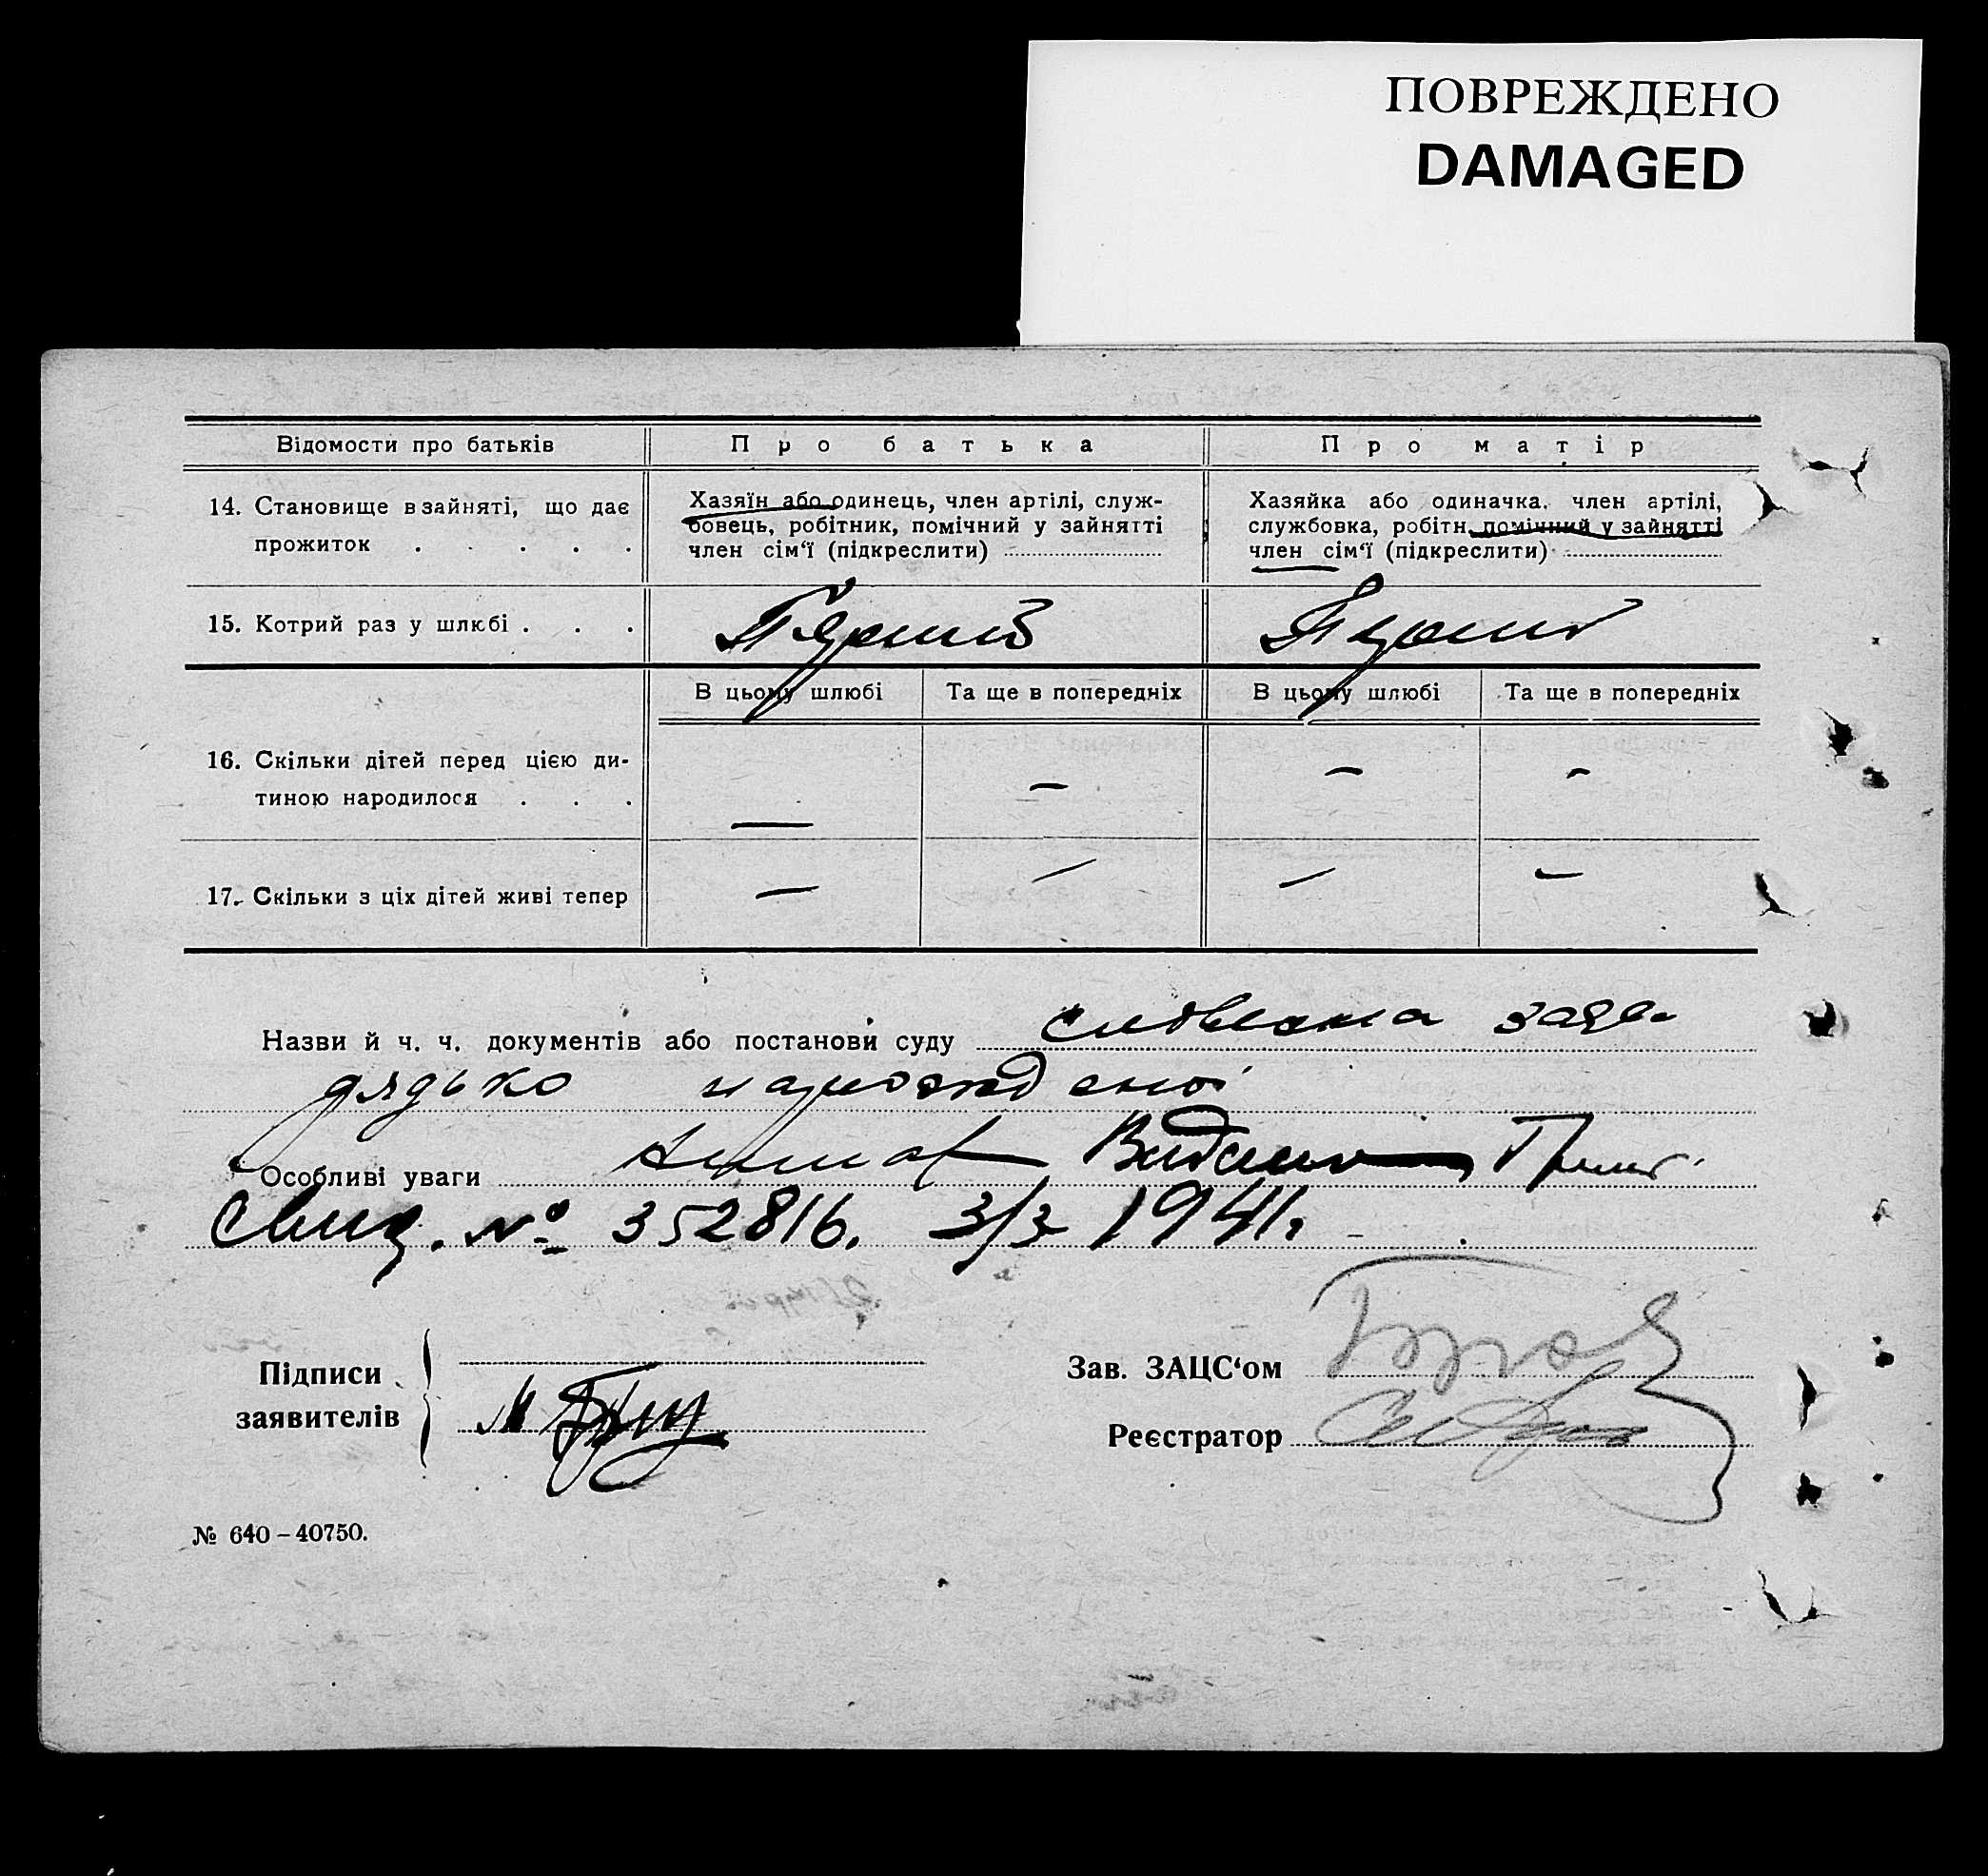 ПОВРЕЖДЕНО
DAMAGED
Відомости про батьків
Про батька
Про матір
14. Становище в зайняті, що дає
прожиток . . . . .
Хазяїн або одинець, член артілі, служ-
бовець, робітник, помічний у зайнятті
член сім‘ї (підкреслити)
Хазяйка або одиначка, член артілі,
службовка, робітн. помічний у зайнятті
член сім‘ї (підкреслити)
15. Котрий раз у шлюбі . . .
Перший
Перший
В цьому шлюбі
Та ще в попередніх
В цьому шлюбі
Та ще в попередніх
16. Скільки дітей перед цією ди-
тиною народилося . . .
— – – –
17. Скільки з ціх дітей живі тепер
— – – –
Назви й ч. ч. документів або постанови суду словесна заяв.
дядько народженої
Особливі уваги
Свид. № 352816. 3/3 1941.
Підписи
заявителів
Зав. ЗАЦС‘ом
Реєстратор
№ 640–40750.